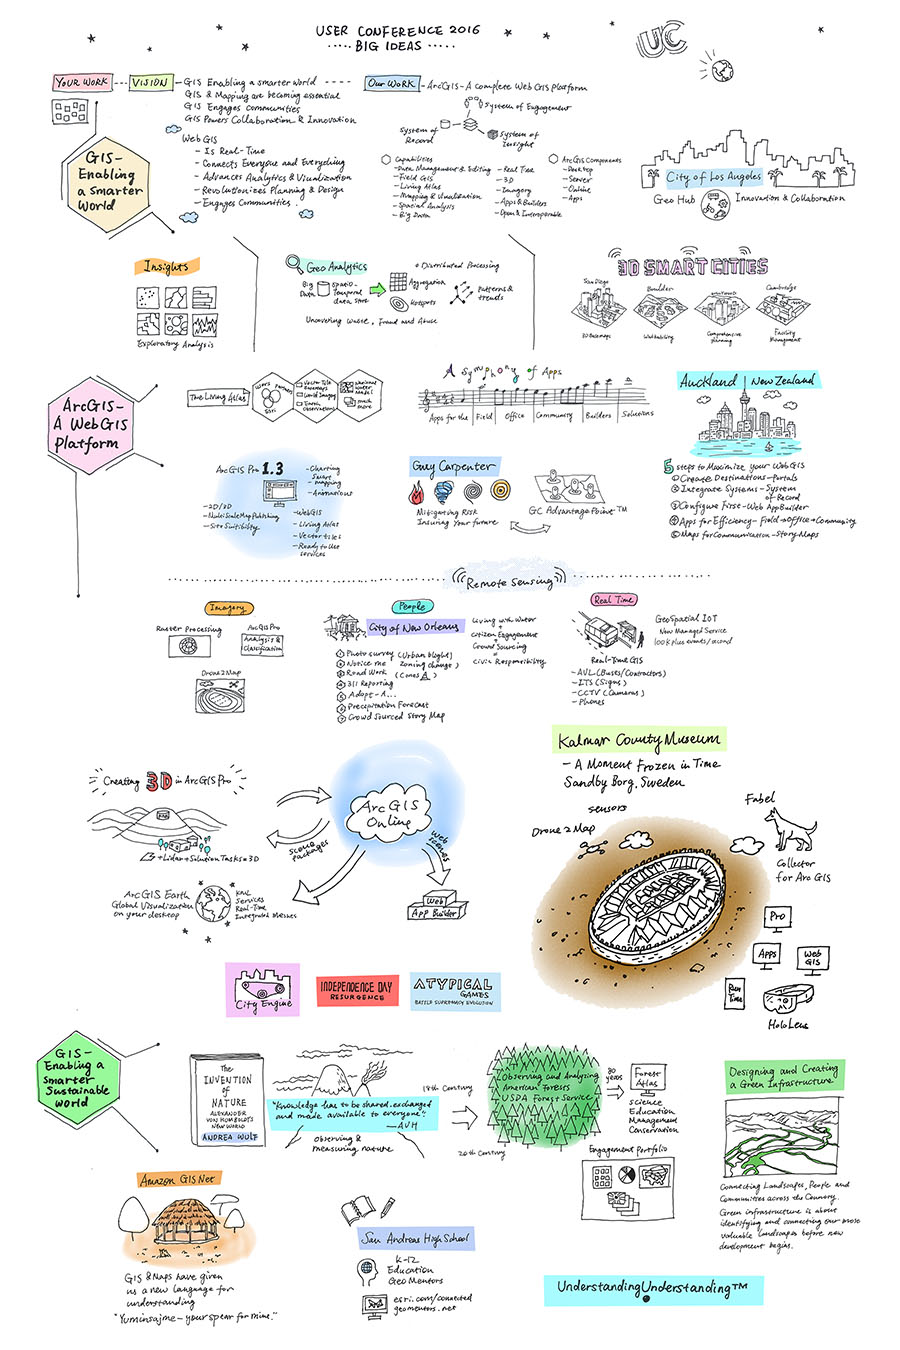 USER CONFERENCE 2016
BIG IDEAS
UC
YOUR WORK
VISION
GIS Enabling a smarter world
GIS & Mapping are becoming essential
GIS Engages Communities
GIS Powers Collaboration & Innovation
Web GIS
- Is Real-Time
- Connects Everyone and Everything
- Advances Analytics & Visualization
- Revolutionizes Planning & Design
- Engages Communities.
GIS-
Enabling
a smarter
World
Our Work
ArcGIS - A complete Web GIS Platform
System of Engagement
System of
Record
System of
Insight
Capabilities
- Data Management & Editing
- Field GIS
- Living Atlas
- Mapping & Visualization
- Spatial Analysis
- Big Data
- Real Time
- 3D
- Imagery
- Apps & Builders
- Open & Interoperable
ArcGIS Components
- Desktop
- Server
- Online
- Apps
City of Los Angeles
Geo Hub
Innovation & Collaboration
Insights
Exploratory Analysis
Geo Analytics
Big
Data
Spatio-
Temporal
data store
+ Distributed Processing
Aggregation
Hotspots
Patterns &
trends
Uncovering Waste, Fraud and Abuse
3D SMART CITIES
San Diego
Boulder
Cambridge
3D Basemaps
Walkability
Comprehensive
planning
Facility
Management
ArcGIS-
A WebGIS
Platform
The Living Atlas
Esri
Vector Tile
Basemaps
World Imagery
Earth
Observations
National
Water
Model
much
more
A Symphony of Apps
Apps for the | Field | Office | Community | Builders | Solutions
Auckland | New Zealand
5 steps to Maximize your WebGIS
① Create Destinations - Portals
② Integrate Systems - System
of Record
③ Configure First - Web AppBuilder
④ Apps for Efficiency - Field → Office → Community
⑤ Maps for Communication - Story Maps
ArcGIS Pro 1.3
- Charting
Smart
- mapping
- Animations
- 2D/3D
- MultiScale Map Publishing
- Site Suitibility
- WebGIS
- Living Atlas
- Vector tiles
- Ready to Use
services
Guy Carpenter
Mitigating Risk
Insuring Your future
GC AdvantagePoint™
Remote Sensing
Imagery
Raster Processing
ArcGIS Pro
Analysis &
Classification
Drone 2 Map
People
City of New Orleans
① Photo survey (Urban blight)
② Notice me (zoning change)
③ Road Work (Cones)
④ 311 Reporting
⑤ Adopt-A...
⑥ Precipitation Forecast
⑦ Crowd Sourced Story Map
Living with Water
+
Citizen Engagement
Crowd Sourcing
=
Civic Responsibility
Real Time
GeoSpatial IoT
New Managed Service
100K plus events/second
Real-Time GIS
- AVL (Buses/Contractors)
- ITS (Signs)
- CCTV (Cameras)
- Phones
Kalmar County Museum
- A Moment Frozen in Time
Sandby Borg, Sweden
Creating 3D in ArcGIS Pro
+ Lidar + Solution Tasks = 3D
ArcGIS
Online
Scene
packages
Web
scenes
Web
App Builder
ArcGIS Earth
Global Visualization
on your desktop
KML
Services
Real-Time
Integrated Meshes
sensors
Drone 2 Map
Fabel
Collector
for Arc GIS
Pro
Apps
Web
GIS
Run
Time
HoloLens
City Engine
INDEPENDENCE DAY
RESURGENCE
ATYPICAL
GAMES
BATTLE SUPREMACY EVOLUTION
GIS-
Enabling a
Smarter
Sustainable
World
The
INVENTION
OF
NATURE
ALEXANDER
VON HUMBOLDT'S
NEW WORLD
ANDREA WULF
"Knowledge has to be shared, exchanged
and made available to everyone".
- AVH
observing &
measuring nature
18th Century
20th Century
- Observing and Analyzing
American Forests
- USDA Forest Service
30
years
Forest
Atlas
Science
Education
Management
Conservation
Engagement Portfolio
Designing and Creating
a Green Infrastructure
Connecting Landscapes, People and
Communities across the Country.
Green infrastructure is about
identifying and connecting our most
valuable landscapes before new
development begins.
Amazon GIS Net
GIS & Maps have given
us a new language for
understanding
"Yuminsajme - your spear for mine."
San Andreas High School
K-12
Education
GeoMentors
esri.com/connected
geomentors.net
UnderstandingUnderstanding™